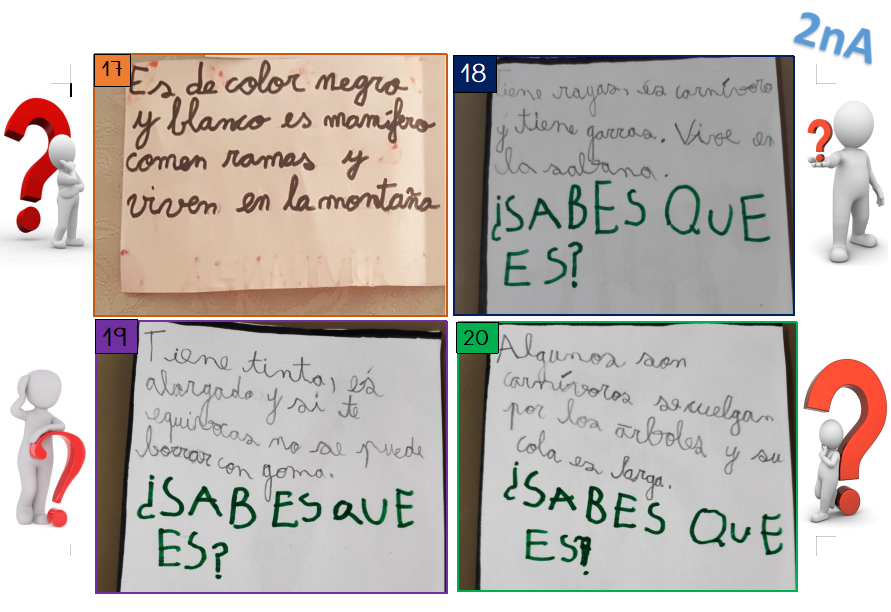 2nA
17
Es de color negro
y blanco es mamífero
comen ramas y
viven en la montaña
18
Tiene rayas, és carnívoro
y tiene garras. Vive en
la sabana.
¿SABES QUE
ES?
19
Tiene tinta, és
alargado y si te
equivocas no se puede
borrar con goma.
¿SABES QUE
ES?
20
Algunos son
carnívoros se cuelgan
por los árboles y su
cola es larga.
¿SABES QUE
ES?